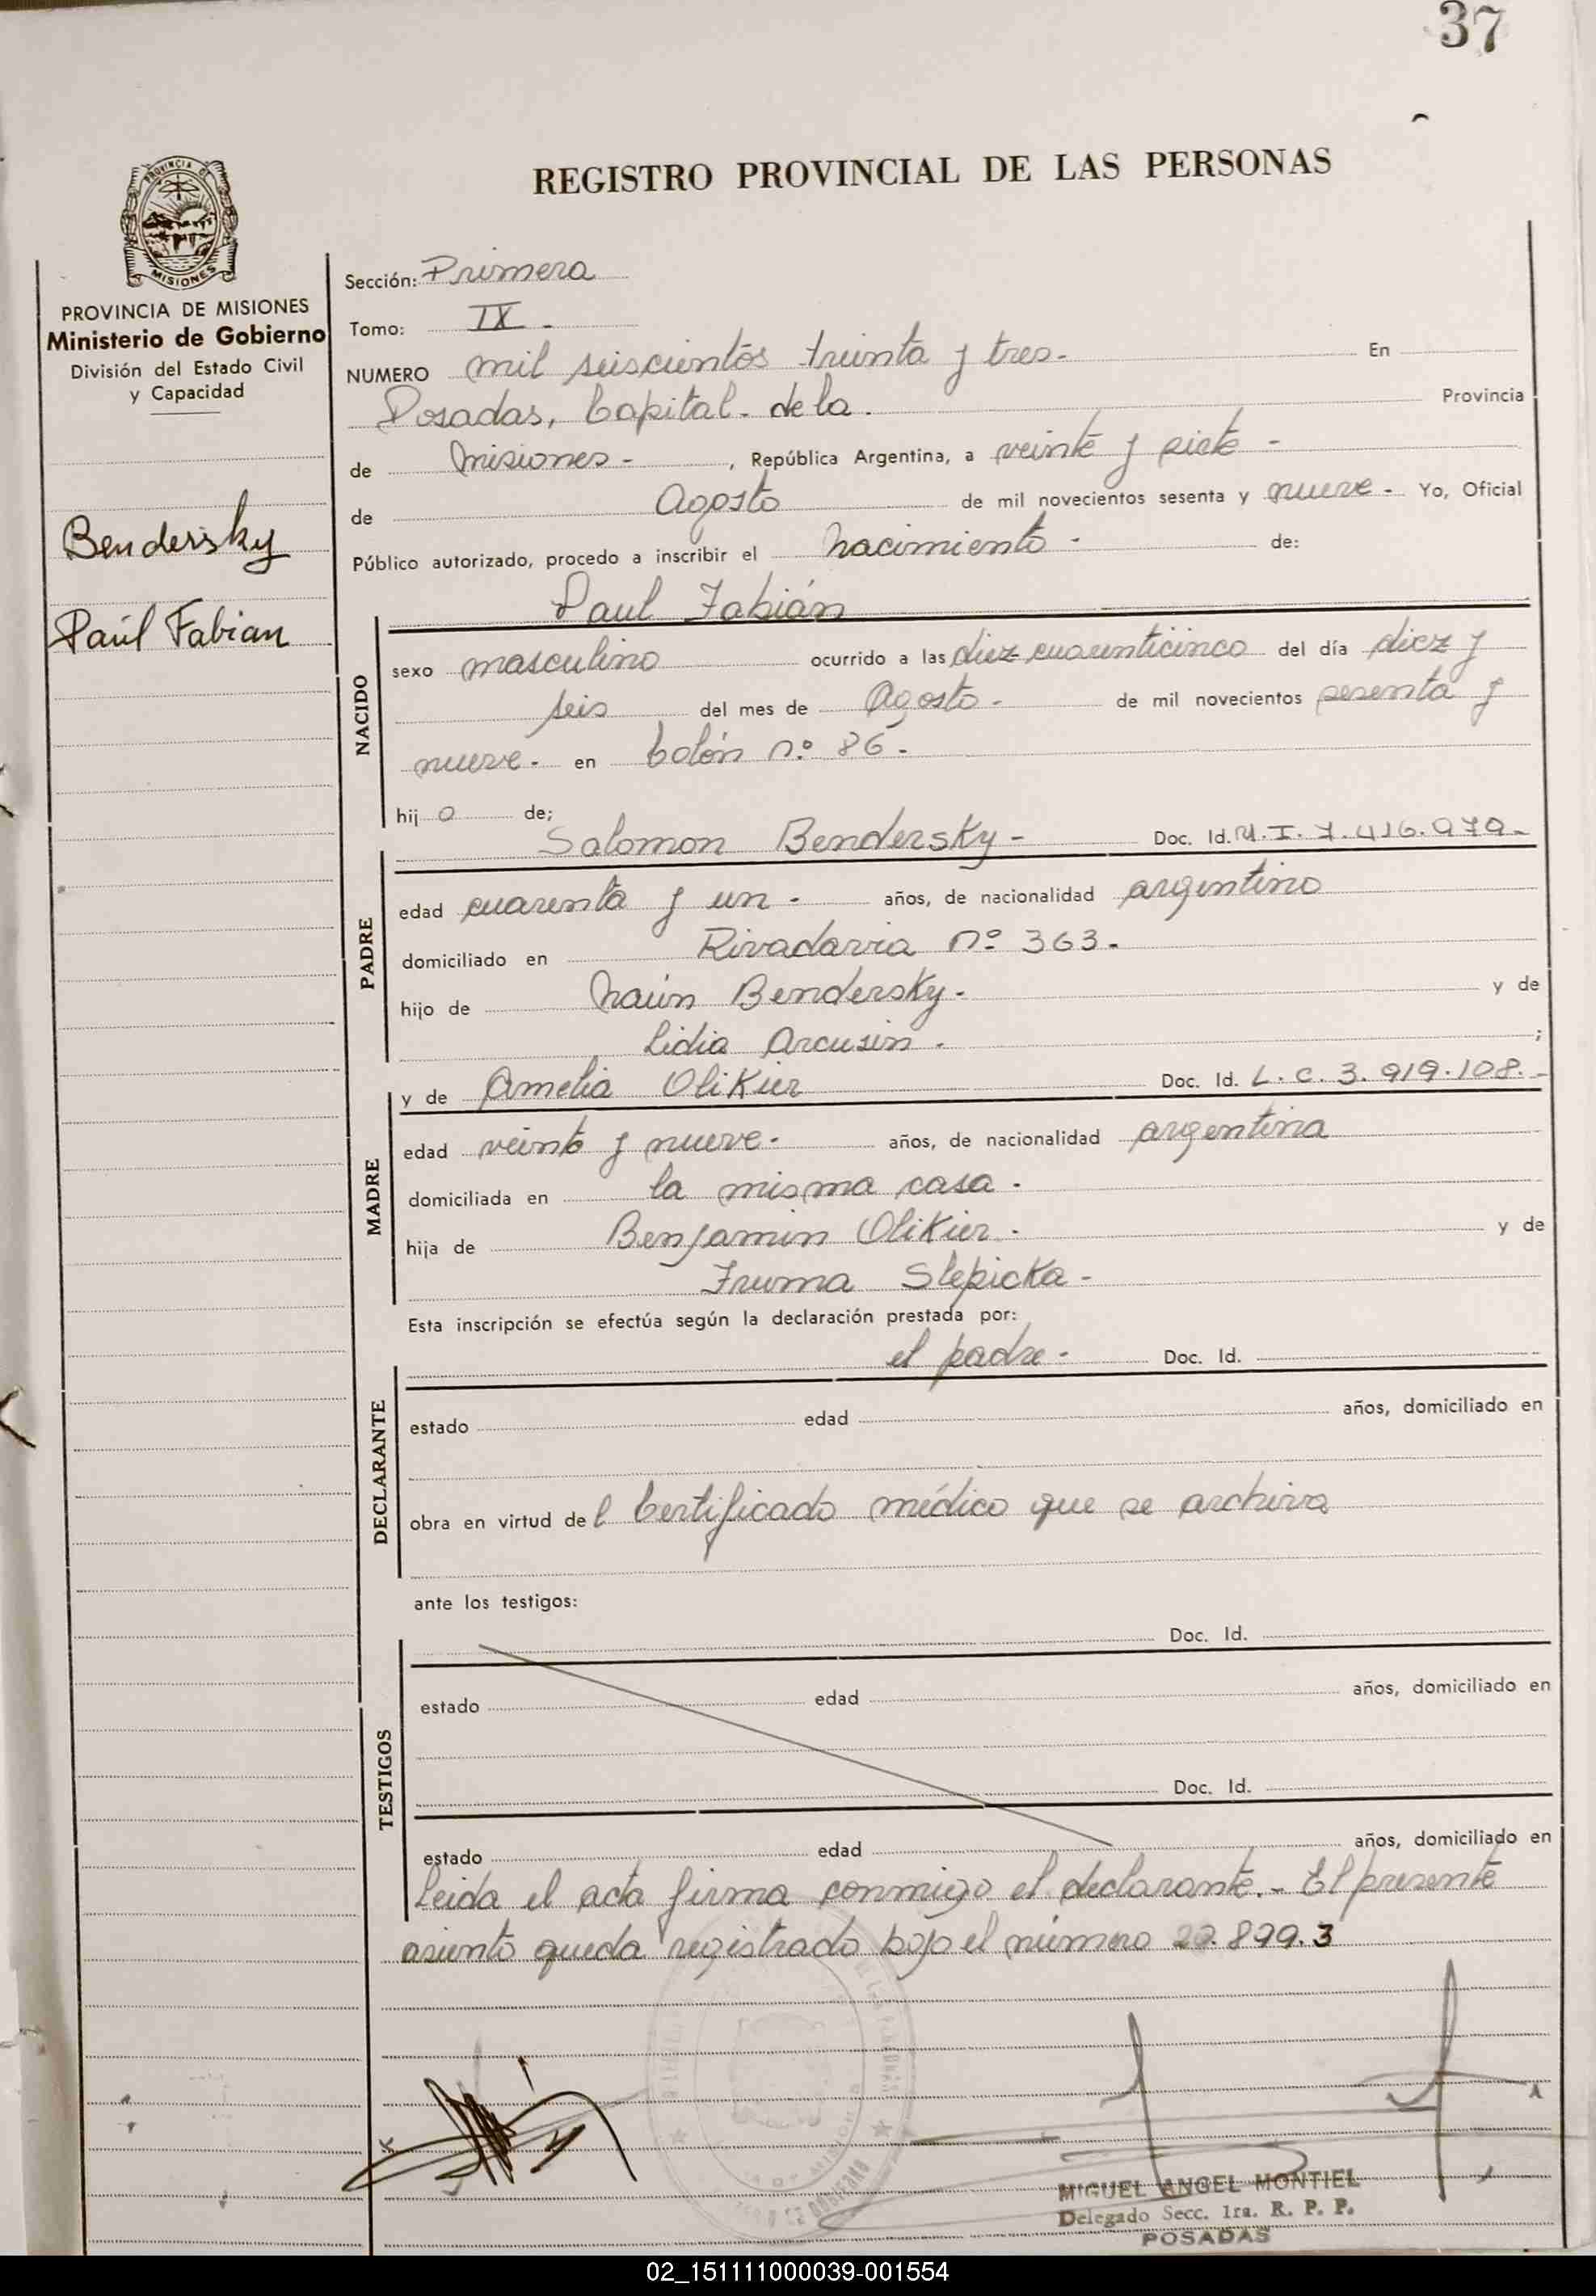 37
REGISTRO PROVINCIAL DE LAS PERSONAS
PROVINCIA
MISIONES
PROVINCIA DE MISIONES
Ministerio de Gobierno
División del Estado Civil
y Capacidad
Bendersky
Paúl Fabian
Sección: Primera
Tomo: IX -
NUMERO mil seiscientos treinta y tres - En
Posadas, Capital - de la . Provincia
de Misiones - , República Argentina, a veinte y siete -
de Agosto de mil novecientos sesenta y nueve - Yo, Oficial
Público autorizado, procedo a inscribir el nacimiento - de:
Paul Fabián
NACIDO
sexo masculino ocurrido a las diez cuarenticinco del día diez y
seis del mes de Agosto - de mil novecientos sesenta y
nueve - en Colón nº 86 -
hij o de;
Salomon Bendersky - Doc. Id. M. I. 7.416.979 -
PADRE
edad cuarenta y un - años, de nacionalidad argentino
domiciliado en Rivadavia nº 363 -
hijo de Naún Bendersky - y de
Lidia Arcusin . ;
y de Amelia Olikier Doc. Id. L. C. 3.919.108. -
MADRE
edad veinte y nueve - años, de nacionalidad argentina
domiciliada en la misma casa .
hija de Benjamin Olikier - y de
Fruma Slepicka -
Esta inscripción se efectúa según la declaración prestada por:
el padre - Doc. Id.
DECLARANTE
estado edad años, domiciliado en
obra en virtud de l Certificado médico que se archiva
ante los testigos:
Doc. Id.
TESTIGOS
estado edad años, domiciliado en
Doc. Id.
estado edad años, domiciliado en
Leida el acta firma conmigo el declarante. - El presente
asiento queda registrado bajo el número 29.899.3
MIGUEL ANGEL MONTIEL
Delegado Secc. 1ra. R. P. P.
POSADAS
02_151111000039-001554